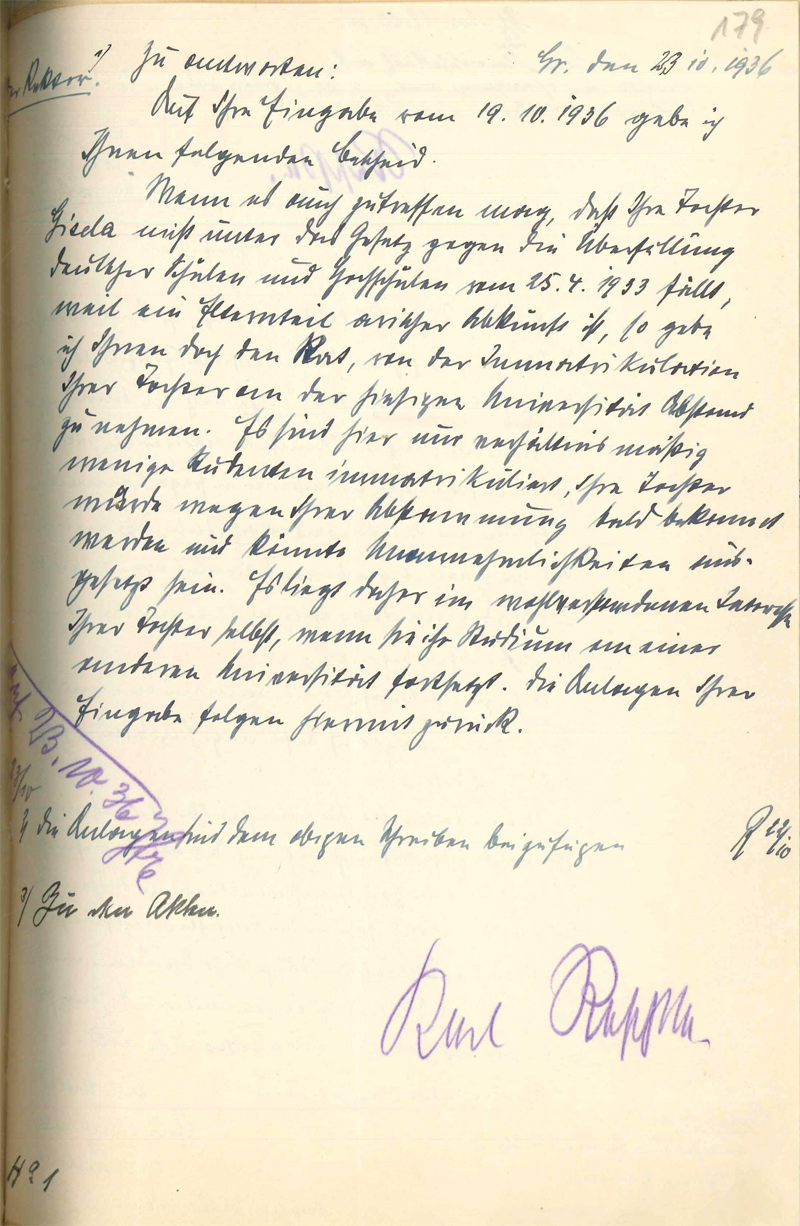 179
Der Rektor.
1) Zu antworten: Gr. den 23 10. 1936
Auf Ihre Eingabe vom 19. 10. 1936 gebe ich
Ihnen folgenden Bescheid.
Wenn es auch zutreffen mag, daß Ihre Tochter
Gisela nicht unter das Gesetz gegen die Überfüllung
deutscher Schulen und Hochschulen vom 25. 4. 1933 fällt,
weil ein Elternteil arischer Abkunft ist, so gebe
ich Ihnen doch den Rat, von der Immatrikulation
Ihrer Tochter an der hiesigen Universität Abstand
zu nehmen. Es sind hier nur verhältnismäßig
wenige Studenten immatrikuliert, Ihre Tochter
würde wegen Ihrer Abstammung bald bekannt
werden und könnte Unannehmlichkeiten aus-
gesetzt sein. Es liegt daher im wohlverstandenen Interesse
Ihrer Tochter selbst, wenn sie ihr Studium an einer
anderen Universität fortsetzt. Die Anlagen Ihrer
Eingabe folgen hiermit zurück.
23. 10. 36
2) die Anlagen sind dem obigen Schreiben beizufügen
22/10
3) Zu den Akten.
Karl